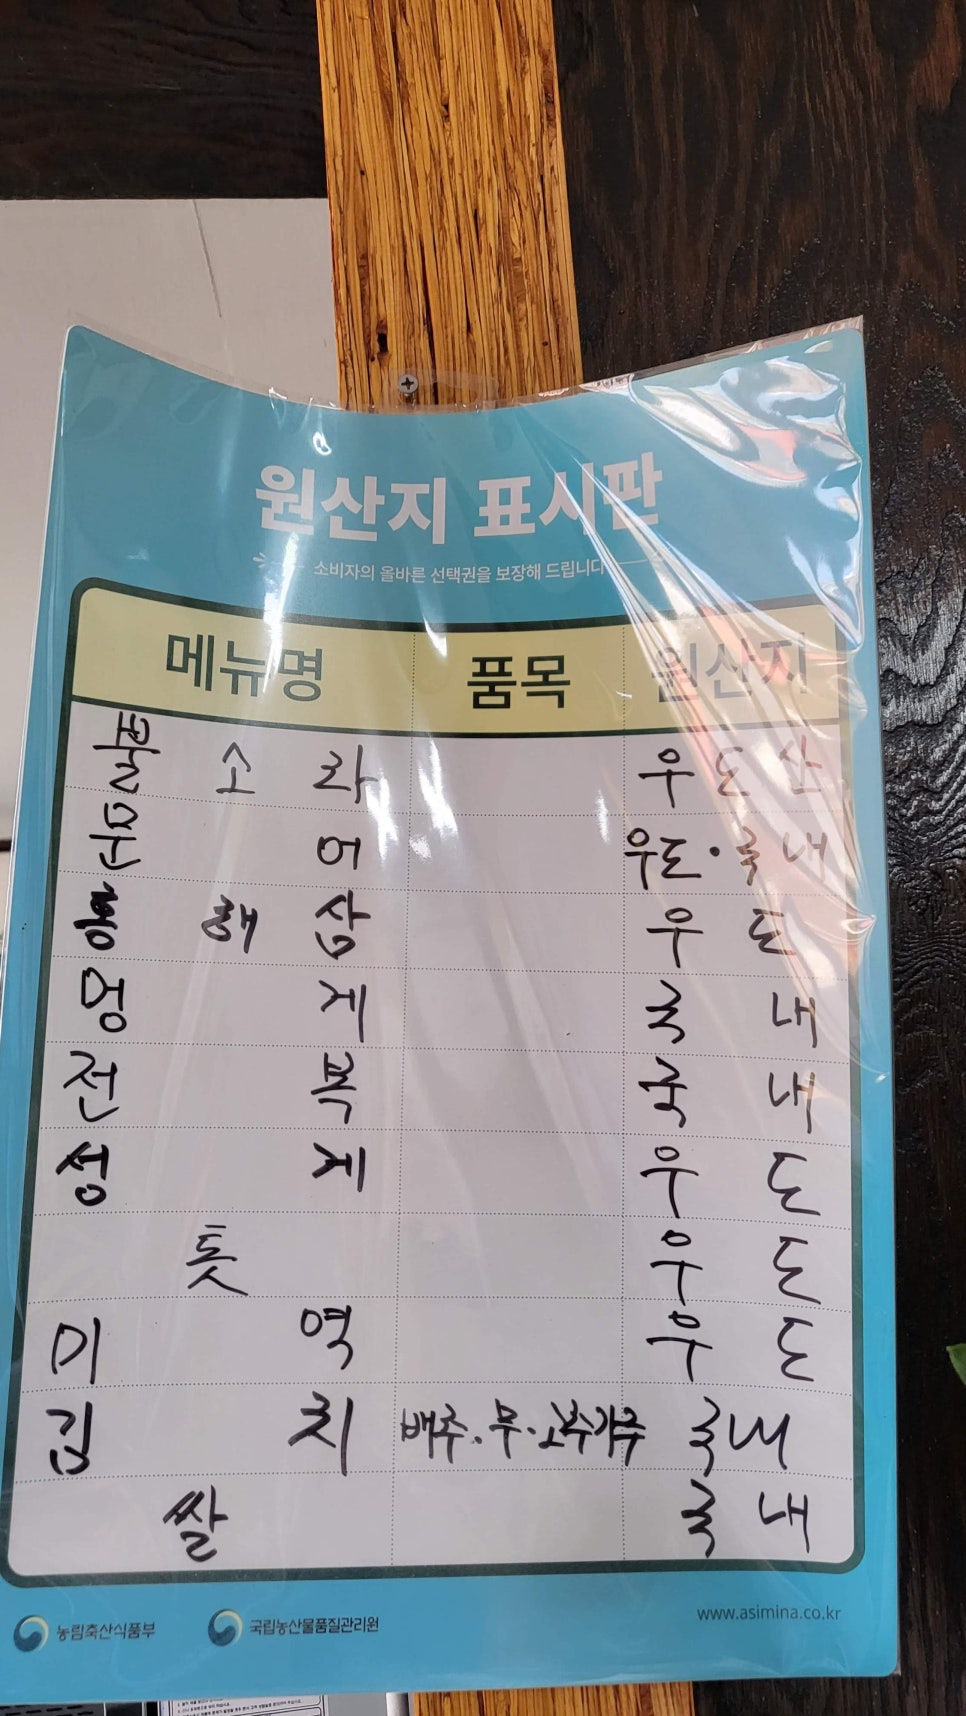 원산지 표시판
소비자의 올바른 선택권을 보장해 드립니다
메뉴명 품목 원산지
뿔소라 우도산
문어 우도·국내
홍해삼 우도
멍게 국내
전복 국내
성게 우도
톳 우도
미역 우도
김치 배추·무·고추가루 국내
쌀 국내
농림축산식품부 국립농산물품질관리원 www.asimina.co.kr